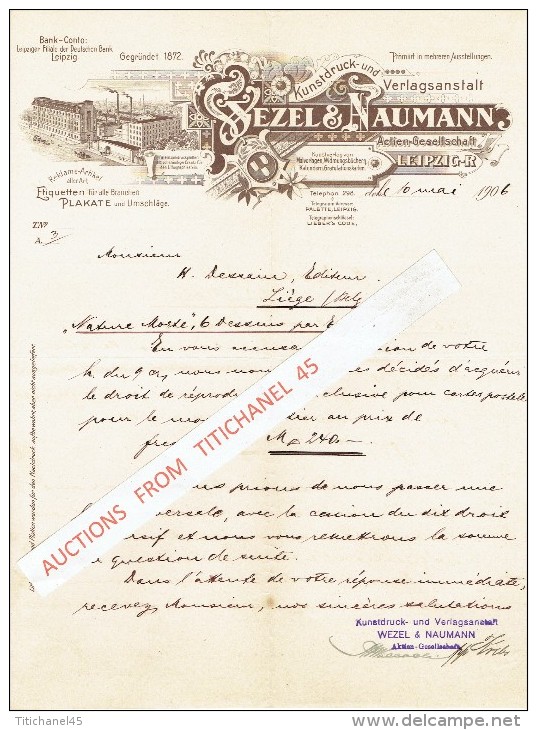 Bank-Conto:
Leipziger Filiale der Deutschen Bank
Leipzig.
Gegründet 1872.
Prämiirt in mehreren Ausstellungen.
Kunstdruck- und
Verlagsanstalt
WEZEL & NAUMANN,
Actien-Gesellschaft
LEIPZIG-R
Reklame-Artikel
aller Art.
Etiquetten für alle Branchen
PLAKATE und Umschläge.
Telephon 298.
Telegramm-Adresse:
PALETTE, LEIPZIG.
Telegraphenschlüssel:
LIEBER'S CODE.
10 mai 1906
A. 3
Monsieur
H. Dessain, Editeur
Liège
"Nature Morte", 6 Dessins par
En vous accusant de votre
du 9 ct, nous décidés d'acquérir
le droit de exclusive pour cartes postale
pour le au prix de
frcs Mk 240.—
prions de nous passer une
avec la cession du dit droit
et nous vous remettrons la somme
question de suite.
Dans l'attente de votre réponse immédiate,
recevez, Monsieur, nos sincères salutations
Kunstdruck- und Verlagsanstalt
WEZEL & NAUMANN
Aktien-Gesellschaft
AUCTIONS FROM TITICHANEL 45
Titichanel45
delcampe.net